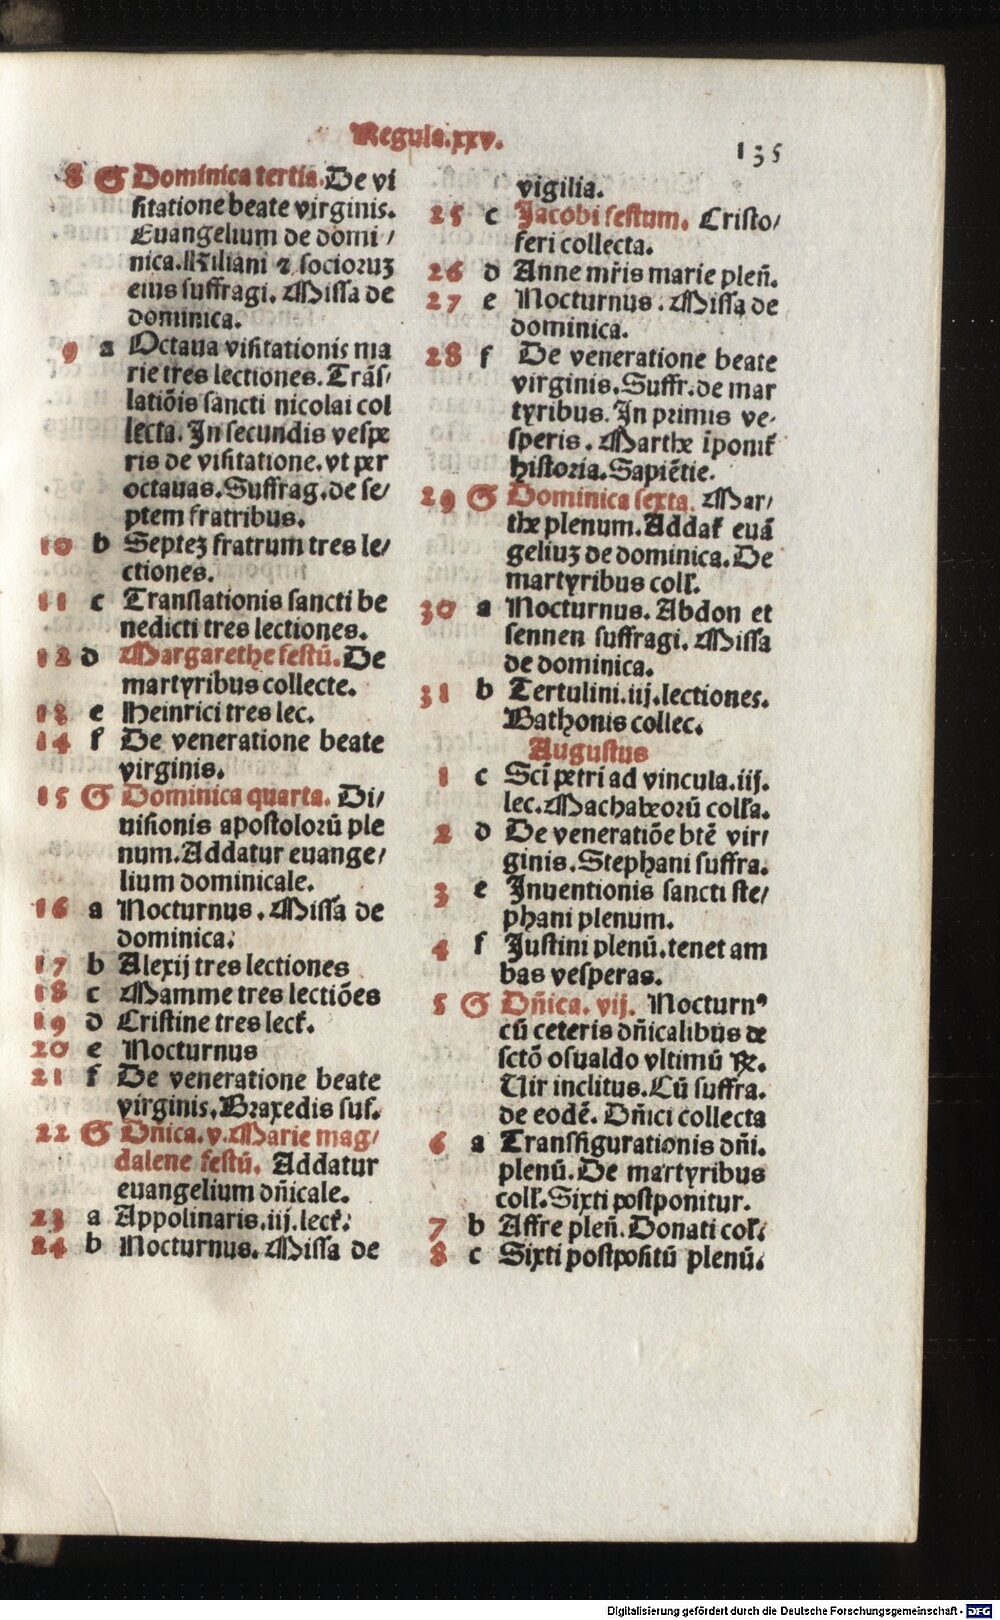 Regula.xxv.
135
8 G Dominica tertia. De vi
sitatione beate virginis.
Euangelium de domi/
nica. Kiliani ⁊ socioruꝫ
eius suffragi. Missa de
dominica.
9 a Octaua visitationis ma
rie tres lectiones. Trãs/
latiõis sancti nicolai col
lecta. In secundis vespe
ris de visitatione. vt per
octauas. Suffrag. de se/
ptem fratribus.
10 b Septeꝫ fratrum tres le/
ctiones.
11 c Translationis sancti be
nedicti tres lectiones.
12 d Margarethe festũ. De
martyribus collecte.
13 e Heinrici tres lec.
14 f De veneratione beate
virginis.
15 G Dominica quarta. Di/
uisionis apostolorũ ple
num. Addatur euange/
lium dominicale.
16 a Nocturnus. Missa de
dominica.
17 b Alexij tres lectiones
18 c Mamme tres lectiões
19 d Cristine tres lect̃.
20 e Nocturnus
21 f De veneratione beate
virginis. Braxedis suf.
22 G Dñica. v. Marie mag/
dalene festũ. Addatur
euangelium dñicale.
23 a Appolinaris. iij. lect̃.
24 b Nocturnus. Missa de
vigilia.
25 c Jacobi festum. Cristo/
feri collecta.
26 d Anne mr̃is marie pleñ.
27 e Nocturnus. Missa de
dominica.
28 f De veneratione beate
virginis. Suffr. de mar
tyribus. In primis ve-
speris. Marthe ĩponit̃
historia. Sapiẽtie.
29 G Dominica sexta. Mar/
the plenum. Addat̃ euã
geliuꝫ de dominica. De
martyribus coll̃.
30 a Nocturnus. Abdon et
sennen suffragi. Missa
de dominica.
31 b Tertulini. iij. lectiones.
Bathonis collec.
Augustus
1 c Scĩ petri ad vincula. iij.
lec. Machabeorũ coll̃a.
2 d De veneratiõe btẽ vir/
ginis. Stephani suffra.
3 e Inuentionis sancti ste/
phani plenum.
4 f Justini plenũ. tenet am
bas vesperas.
5 G Dñica. vij. Nocturnꝰ
cũ ceteris dñicalibus de
sctõ osualdo vltimũ ℟.
Uir inclitus. Cũ suffra.
de eodẽ. Dñici collecta
6 a Transfigurationis dñi.
plenũ. De martyribus
coll̃. Sixti postponitur.
7 b Affre pleñ. Donati col̃.
8 c Sixti postpositũ plenũ.
Digitalisierung gefördert durch die Deutsche Forschungsgemeinschaft - DFG